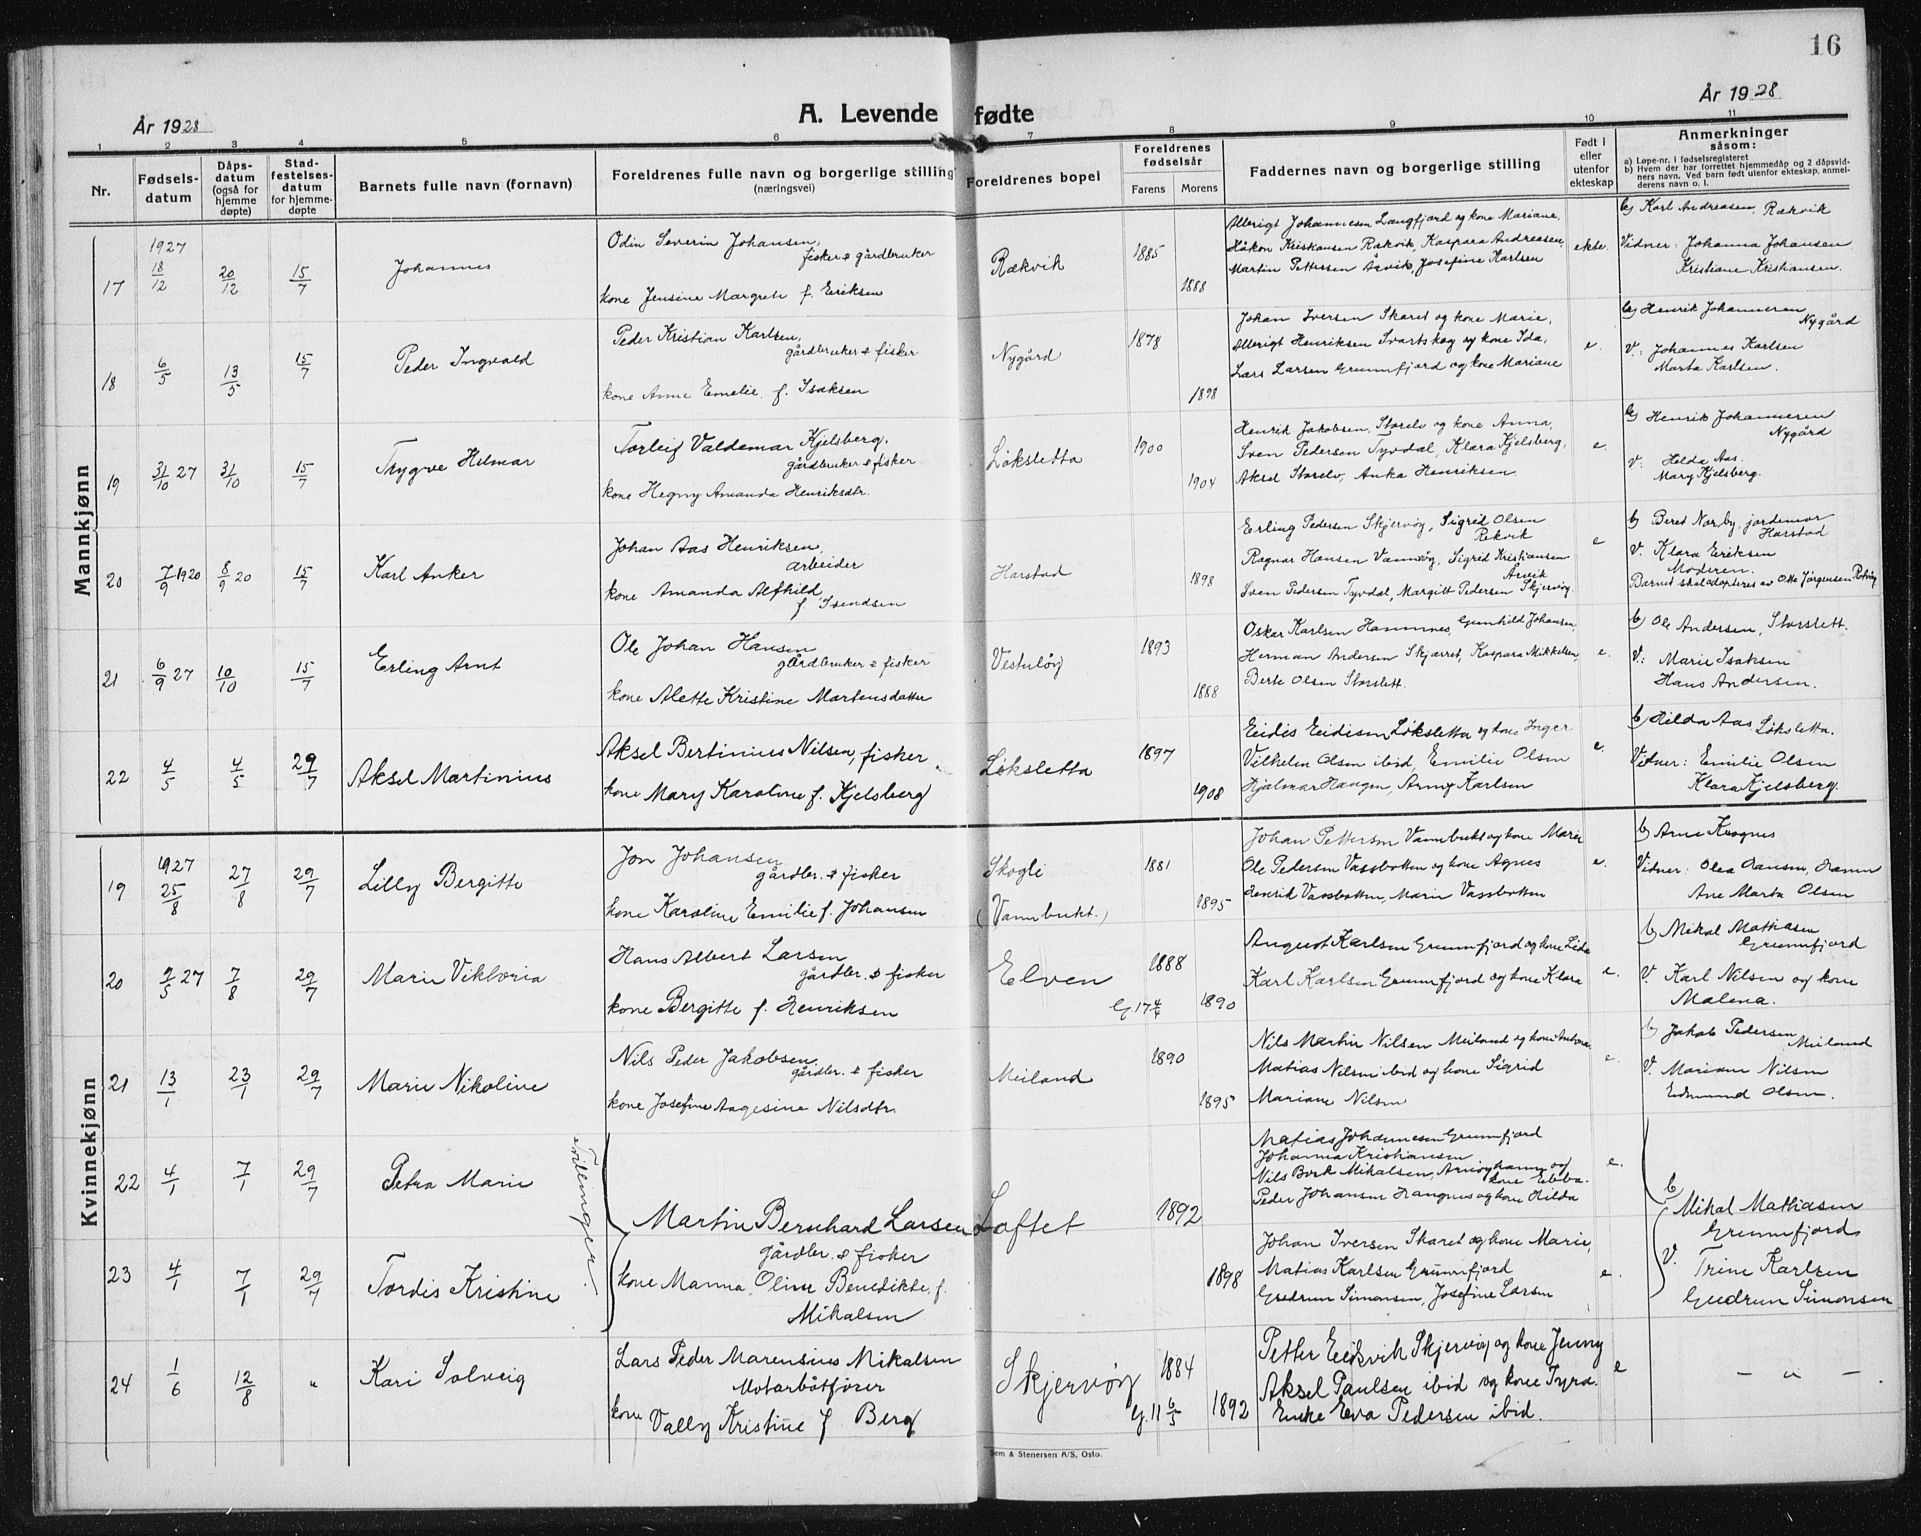 16
År 1928
A. Levende fødte
År 1928
1 2 3 4 5 6 7 8 9 10 11
Nr.
Fødsels-
datum
Dåps-
datum
(også for
hjemme
døpte)
Stad-
festelses-
datum
for hjemme-
døpte
Barnets fulle navn (fornavn)
Foreldrenes fulle navn og borgerlige stilling
(næringsvei)
Foreldrenes bopel
Foreldrenes
fødselsår
Farens Morens
Faddernes navn og borgerlige stilling
Født i
eller
utenfor
ekteskap
Anmerkninger
såsom:
a) Løpe-nr. i fødselsregisteret
b) Hvem der har forrettet hjemmedåp og 2 dåpsvid-
ners navn. Ved barn født utenfor ekteskap, anmel-
derens navn o. l.
Mannkjønn
17
1927
18/12
20/12
15/7
Johannes
Odin Severin Johansen,
fisker & gårdbruker
kone Jensine Margrete f. Eriksen
Rækvik
1885
1888
Allerigt Johannesen Langfjord og kone Mariane,
Håkon Kristiansen Rækvik, Kaspara Andreasen,
Martin Pettersen Årvik, Josefine Karlsen
ekte.
b) Karl Andreasen, Rækvik
Vidner: Johanna Johansen
Kristiane Kristiansen.
18
6/5
13/5
15/7
Peder Ingvald
Peder Kristian Karlsen,
gårdbruker & fisker
kone Anne Emelie, f. Isaksen
Nygård
1878
1898
Johan Iversen Skaret og kone Marie,
Allerigt Henriksen Svartskog og kone Ida,
Lars Larsen Grunnfjord og kone Mariane
e.
b) Henrik Johannesen
Nygård
V.: Johannes Karlsen
Marta Karlsen.
19
31/10 27
31/10
15/7
Trygve Hilmar
Torleif Valdemar Kjelsberg,
gårdbruker & fisker
kone Hegny Amanda Henriksdtr.
Løksletta
1900
1904
Henrik Jakobsen, Storelv og kone Anna,
Sven Pedersen Tyvdal, Klara Kjelsberg,
Aksel Storelv, Anka Henriksen
e.
b) Henrik Johannesen
Nygård
V: Helda Aas.
Mary Kjelsberg.
20
7/9 1920
8/9 20
15/7
Karl Anker
Johan Aas Henriksen,
arbeider
kone Amanda Alfhild,
f. Isendsen
Harstad
1898
Erling Pedersen Skjervøy, Sigrid Olsen
Rekvik
Ragnar Hansen Vannvåg, Sigrid Kristiansen
Årvik
Sven Pedersen Tyvdal, Margitt Pedersen Skjervøy.
e
b) Beret Norby, jordemor
Harstad
V. Klara Eriksen
Moderen.
Barnet skal adopteres av Otto Jørgensen
21
6/9 27
10/10
15/7
Erling Arnt
Ole Johan Hansen
gårdbruker & fisker
kone Alette Kristine Martensdatter
1893
1888
Oskar Karlsen Hamnnes, Gunhild Johansen,
Herman Andersen Skjærret, Kaspara Mikkelsen,
Berte Olsen Storslett.
e.
b) Ole Andersen, Storslett.
V: Marie Isaksen
Hans Andersen.
22
4/5
4/5
29/7
Aksel Martinius
Aksel Bertinius Nilsen, fisker
kone Mary Karoline f. Kjelsberg
Løksletta
1897
1908
Eidis Eidisen Løksletta og kone Inger
Vilhelm Olsen ibid, Emilie Olsen
Hjalmar Haugen, Arny Karlsen
e.
b) Hilda Aas Løksletta.
Vidner: Emilie Olsen
Klara Kjelsberg.
Kvinnekjønn
19
1927
25/8
27/8
29/7
Lilly Bergitte
Jon Johansen
gårdbr. & fisker
kone Karoline Emilie f. Johansen
Skogli
(Vannbukt.)
1881
1895
Johan Pettersen Vannbukt og kone Marie
Ole Pedersen Vassbotten og kone Agnes
Henrik Vassbotten, Marin Vassbotten
e.
b) Arne Krognes
Vidner: Olea Hansen, Hamn
Ane Marta Olsen
20
9/5 27
7/8
29/7
Marie Viktoria
Hans Albert Larsen
gårdbr. & fisker
kone Bergitte f. Henriksen
Elven
G 17 4/4
1888
1890
August Karlsen Grunnfjord og kone Lida
Karl Karlsen Grunnfjord og kone Klara
e.
b) Mikal Mathiasen
Grunnfjord
V. Karl Nilsen og kone
Malena.
21
13/1
23/1
29/7
Marie Nikoline
Nils Peder Jakobsen
gårdbr. & fisker
kone Josefine Aagesine Nilsdtr.
Meiland
1890
1895
Nils Martin Nilsen Meiland og kone Antona
Matias Nilsen ibid og kone Sigrid
Mariane Nilsen
e.
b) Jakob Pedersen
Meiland
V. Mariane Nilsen
Edmund Olsen.
22
4/1
7/1
29/7
Petra Marie
Tvillinger.
Martin Bernhard Larsen
gårdbr. & fisker
kone Manna Oline Benedikte f.
Mikalsen
Loftet
1892
1898
Matias Johannesen Grunnfjord
Johanna Kristiansen
Nils Bork Mikalsen, Arnøyhamn og
kone Ebba.
Peder Johansen Haugnes og kone Hilda
e.
b
Mikal Mathiasen
Grunnfjord
V. Trine Karlsen
Gudrun Simonsen
23
4/1
7/1
29/7
Tordis Kristine
Johan Iversen Skaret og kone Marie,
Matias Karlsen Grunnfjord
Gudrun Simonsen, Josefine Larsen
e.
24
1/6
12/8
"
Kari Solveig
Lars Peder Marensius Mikalsen
Motorbåtfører
kone Vally Kristine f. Berg
Skjervøy
G. 11 6/5
1884
1892
Petter Eidsvik Skjervøy og kone Jenny
Aksel Paulsen ibid og kone Tyra.
Enke Eva Pedersen ibid.
e
- " -
Sem & Stenersen A/S, Oslo.